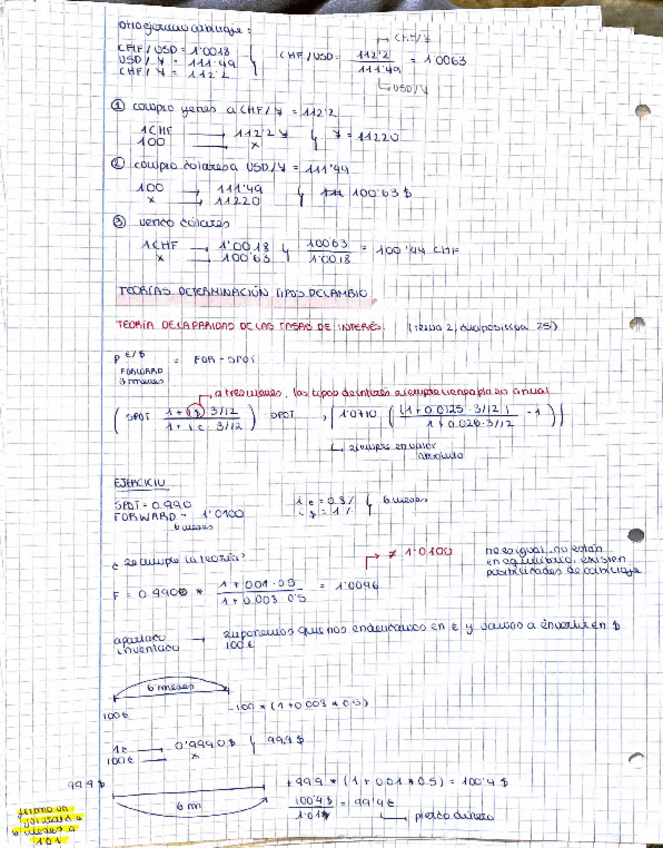 otro ejercicio arbitraje:
CHF/USD = 1'0018
USD/¥ = 111'49
CHF/¥ = 112'2
CHF/USD: 112'2 / 111'49 = 1'0063
CHF/¥
USD/¥
① compro yenes a CHF/¥ = 112'2
1CHF → 112'2 ¥
100 → x
¥ = 11220
② compro dólares a USD/¥ = 111'49
100 → 111'49
x → 11220
100'63 $
③ vendo dólares
1CHF → 1'0018
x → 100'63
10063 / 1'0018 = 100'44 CHF
TEORÍAS DETERMINACIÓN TIPOS DE CAMBIO
TEORÍA DE LA PARIDAD DE LAS TASAS DE INTERÉS (tema 2, diapositiva 25)
P €/$ = FOR - SPOT
FORWARD
3 meses
a tres meses, los tipos de interés siempre vienen a plazo anual
( SPOT 1 + i$ 3/12 / 1 + i€ 3/12 ) SPOT
1'0710 ( (1 + 0'0125 · 3/12) / 1 + 0'026 · 3/12 - 1 )
siempre en valor
absoluto
EJERCICIO
SPOT = 0.990
FORWARD = 1'0100
6 meses
i€ = 0.3%
i$ = 1%
6 meses
¿se cumple la teoría?
F = 0.990 * 1 + 0.01 · 0.5 / 1 + 0.003 · 0.5 = 1'0046
≠ 1'0100
no es igual, no están
en equilibrio, existen
posibilidades de arbitraje
apartado
inventado
→ suponemos que nos endeudamos en € y vamos a invertir en $
100€
6 meses
100€
100 * (1 + 0.003 * 0.5)
1€ → 0'9990$
100€ → x
99.9 $
99.9 $
6 m
+ 99.9 * (1 + 0.01 * 0.5) = 100'4 $
100'4$ / 1.01$ = 99'4€
pierdo dinero
firmo un
6 meses a
1.01